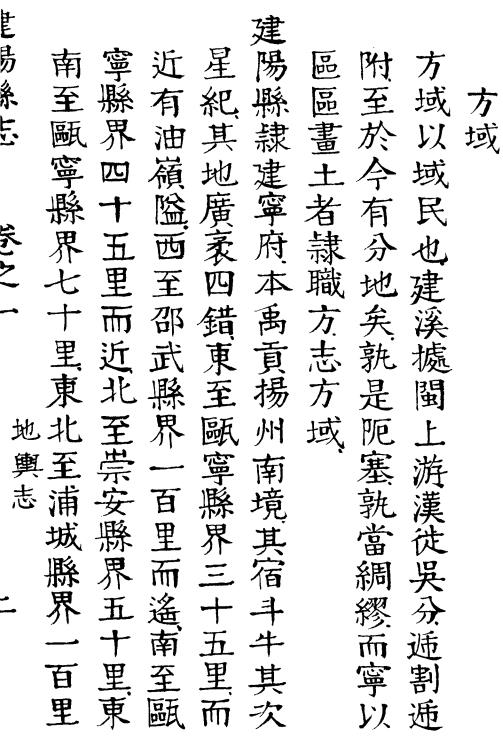 方域
方域以域民也建溪據閩上游漢徙吳分遞割遞
附至於今有分地矣孰是阨塞孰當綢繆而寧以
區區畫土者隷職方志方域
建陽縣隷建寧府本禹貢揚州南境其宿斗牛其次
星紀其地廣袤四錯東至甌寧縣界三十五里而
近有油嶺隘西至邵武縣界一百里而遙南至甌
寧縣界四十五里而近北至崇安縣界五十里東
南至甌寧縣界七十里東北至浦城縣界一百里
建陽縣志 卷之一 地輿志 二